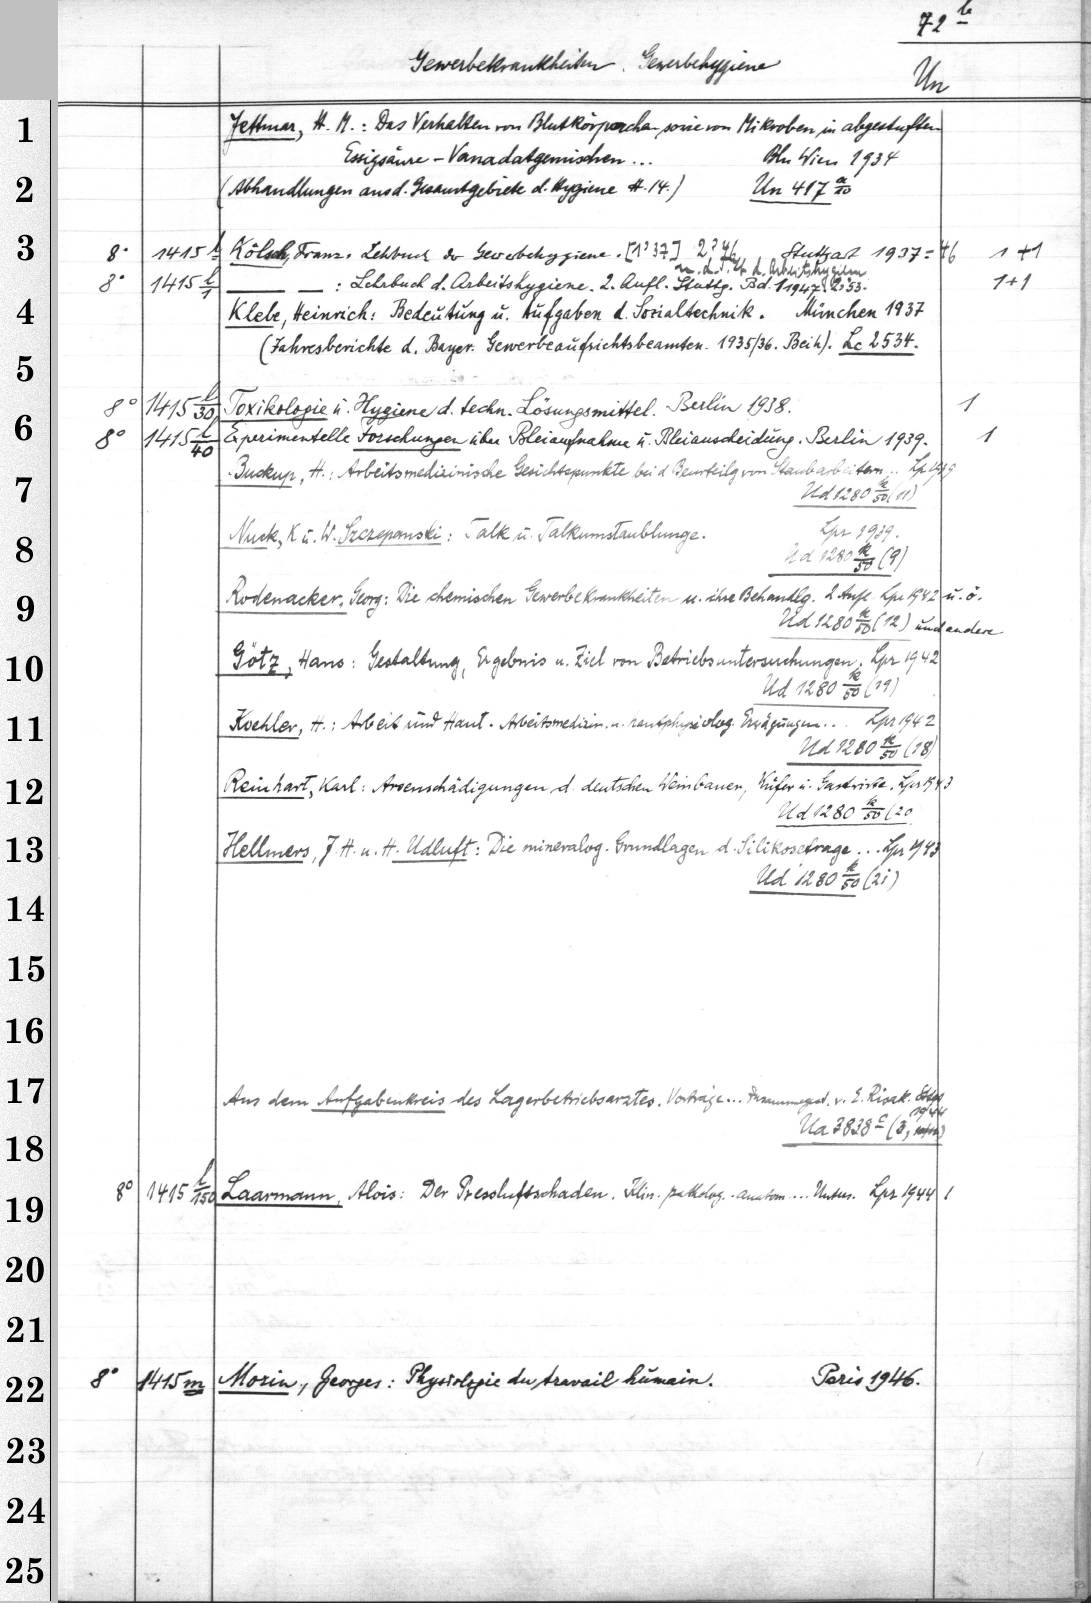 72 b
Gewerbekrankheiten. Gewerbehygiene
Un
1
Jettmar, H. M.: Das Verhalten von Blutkörperchen, sowie von Mikroben in abgestuften
Essigsäure-Vanadatgemischen ... Bln Wien 1934
2
(Abhandlungen aus d. Gesamtgebiete d. Hygiene H. 14.) Un 417 a/10
3
8° 1415 l Kölsch, Franz. Lehrbuch der Gewerbehygiene. [1937] Stuttgart 1937 = 46 1+1
m. d. T. d. Arbeitshygiene
8° 1415 l/1 — — : Lehrbuch d. Arbeitshygiene. 2. Aufl. Stuttg. Bd. 1 1947, 2. 53. 1+1
4
Klebe, Heinrich: Bedeutung u. Aufgaben d. Sozialtechnik. München 1937
(Jahresberichte d. Bayer. Gewerbeaufsichtsbeamten. 1935/36. Beih). Lc 2534.
5
8° 1415 l/30 Toxikologie u. Hygiene d. techn. Lösungsmittel. Berlin 1938. 1
6
8° 1415 l/40 Experimentelle Forschungen über Bleiaufnahme u. Bleiausscheidung. Berlin 1939. 1
Buckup, H.: Arbeitsmedizinische Gesichtspunkte bei d Beurteilg von Staubarbeitern .. Lp 1939
7
Ud 1280 k/50 (11)
Nuck, K u. W. Szczepanski: Talk u. Talkumstaublunge. Lpz 1939.
8
Ud 1280 k/50 (9)
9
Rodenacker, Georg: Die chemischen Gewerbekrankheiten u. ihre Behandlg. 2 Aufl. Lpz 1942 u. ö.
Ud 1280 k/50 (12) und andere
10
Götz, Hans: Gestaltung, Ergebnis u. Ziel von Betriebsuntersuchungen. Lpz 1942
Ud 1280 k/50 (19)
11
Koehler, H.: Arbeit und Haut. Arbeitsmedizin. u. hautphysiolog. Erwägungen... Lpz 1942
Ud 1280 k/50 (18)
12
Reinhart, Karl: Arsenschädigungen d. deutschen Weinbauer, Küfer u. Gastwirte. Lpz 1943
Ud 1280 k/50 (20
13
Hellmers, J. H. u. H. Udluft: Die mineralog. Grundlagen d. Silikosefrage ... Lpz 1943
Ud 1280 k/50 (21)
14
15
16
17
Aus dem Aufgabenkreis des Lagerbetriebsarztes. Vorträge... v. E. Risak. Stttg
1944
Ua 3838 c (3,
18
8° 1415 l/150 Laarmann, Alois: Der Pressluftschaden. Klin. patholog.-anatom ... Unters. Lpz 1944 1
19
20
21
22
8° 1415 m Morin, Georges: Physiologie du travail humain. Paris 1946.
23
24
25